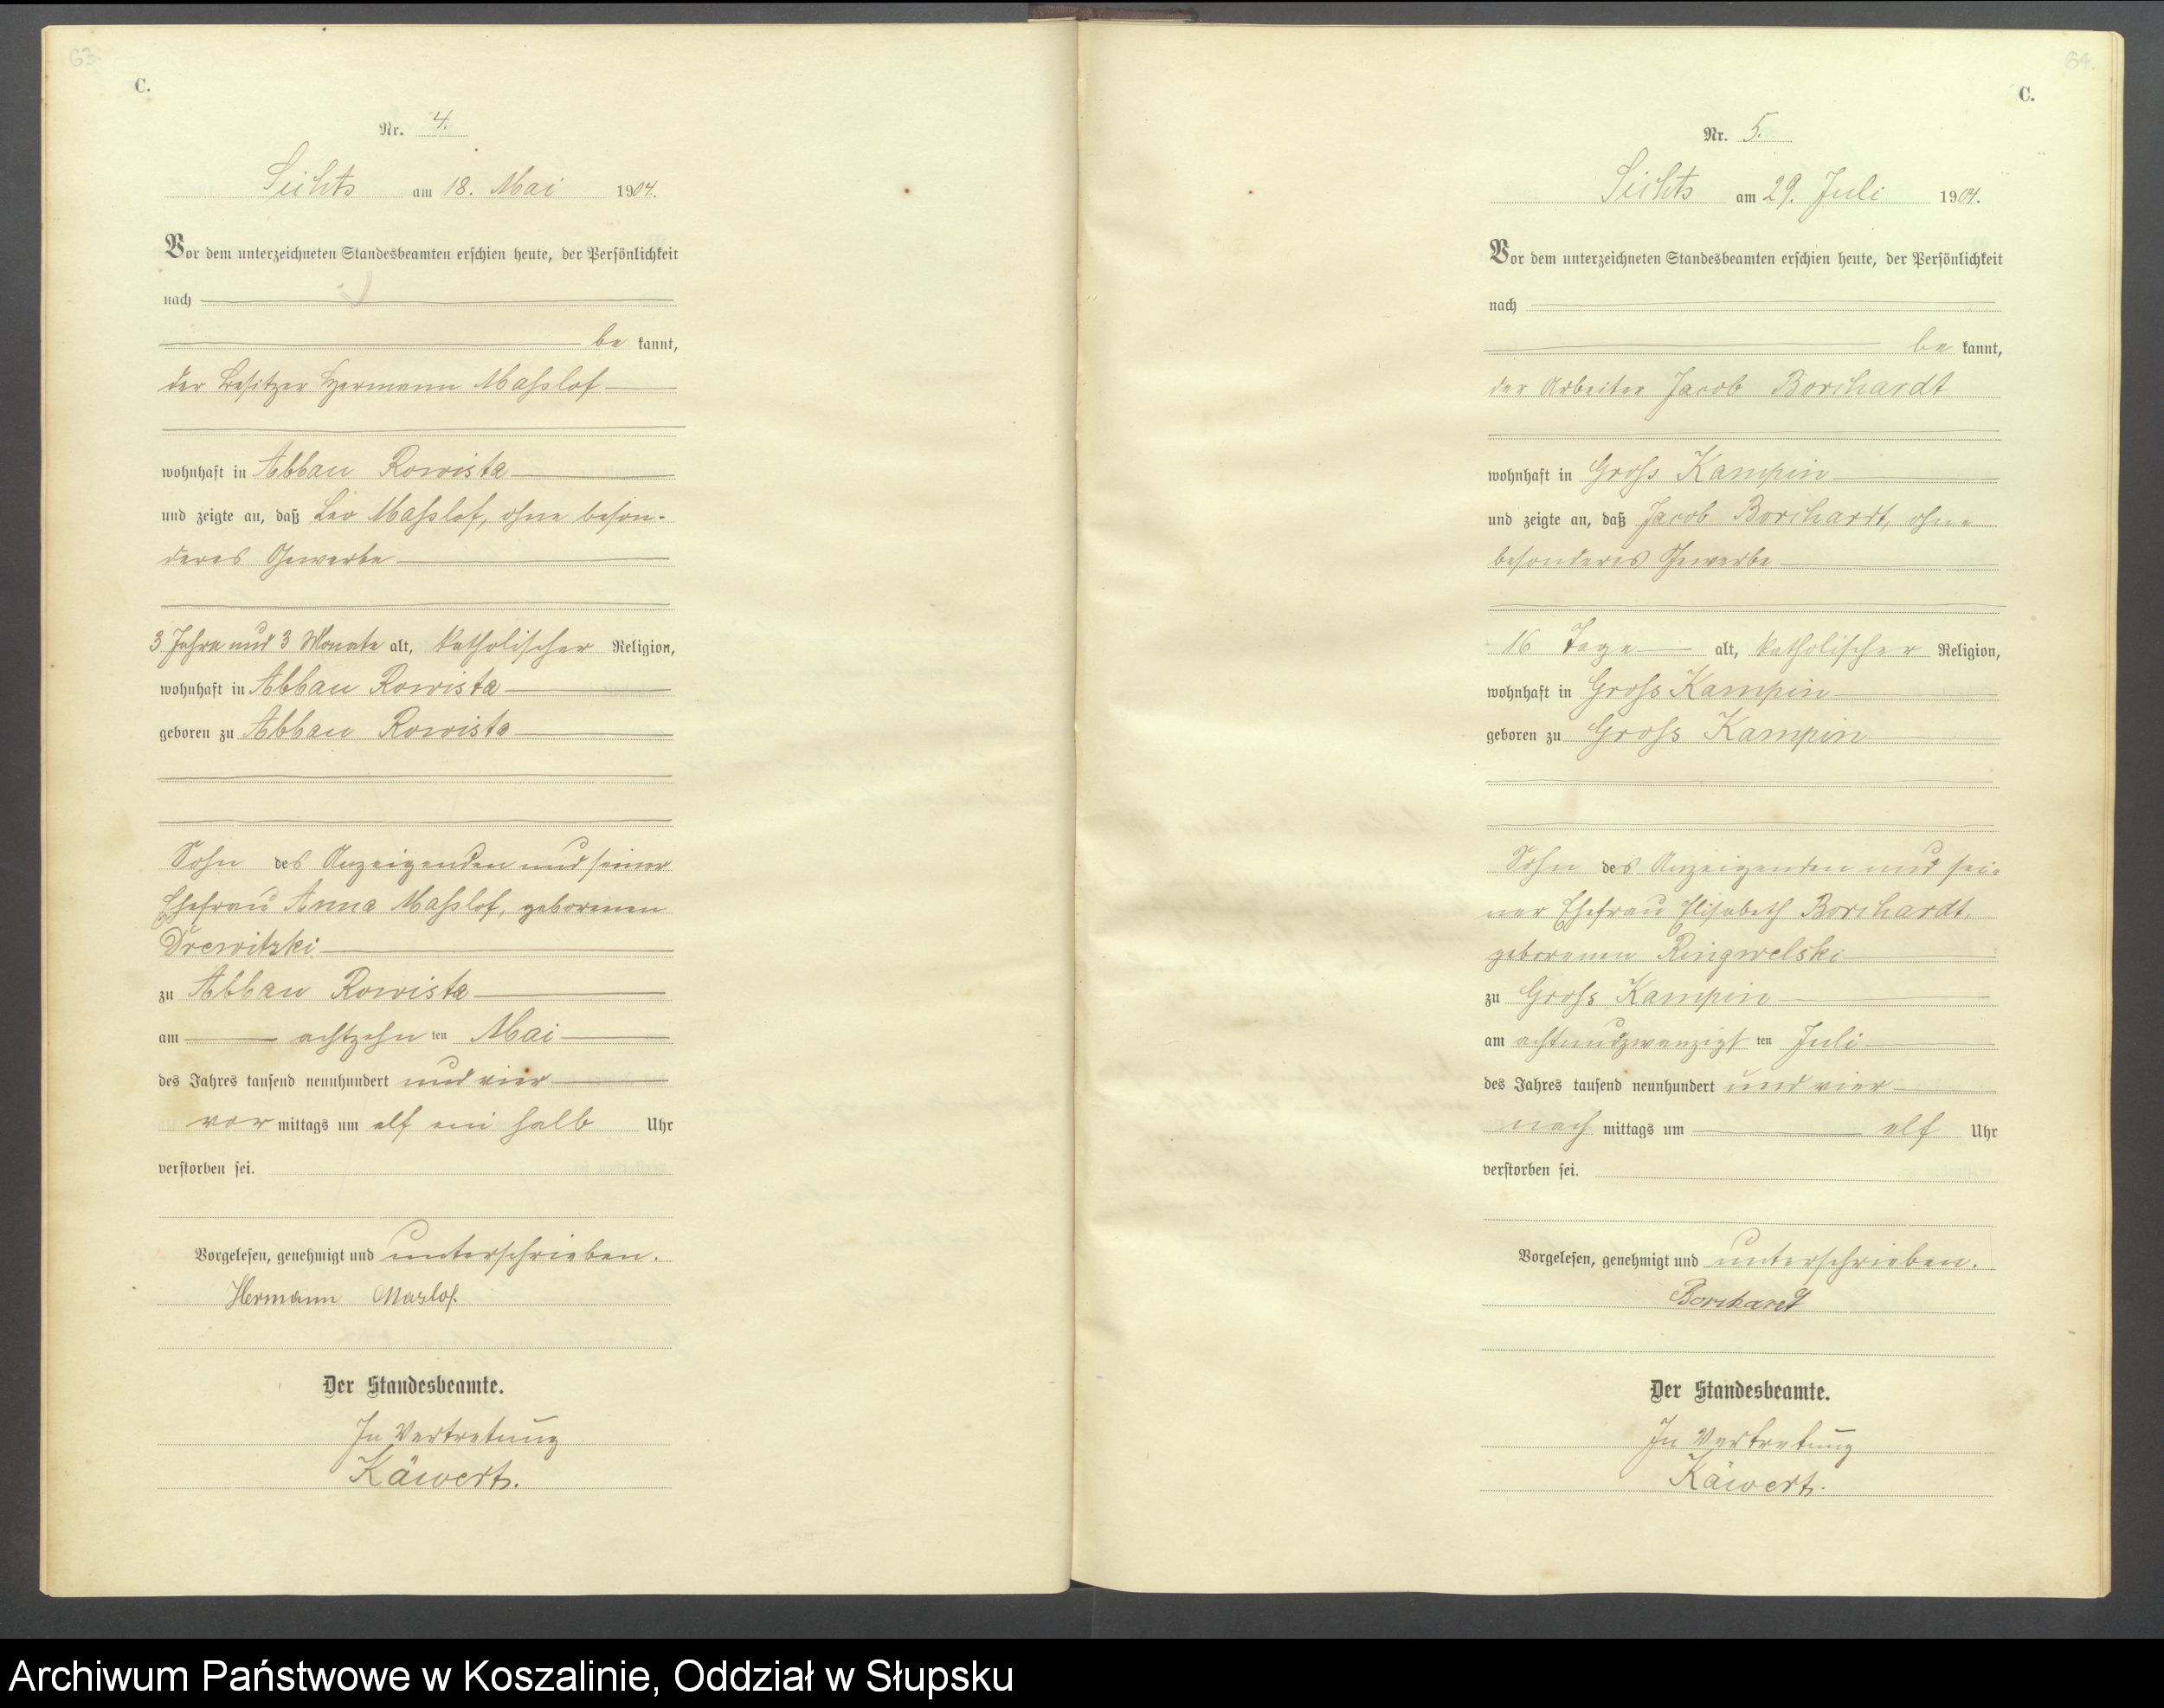 63
C.
Nr. 4.
Sichts am 18. Mai 1904.
Vor dem unterzeichneten Standesbeamten erschien heute, der Persönlichkeit
nach
be kannt,
der Besitzer Hermann Maßlof
wohnhaft in Abbau Rowista
und zeigte an, daß Leo Maßlof, ohne beson-
deres Gewerbe
3 Jahre und 3 Monate alt, katholischer Religion,
wohnhaft in Abbau Rowista
geboren zu Abbau Rowista
Sohn des Anzeigenden und seiner
Ehefrau Anna Maßlof, geborenen
Drewitzki
zu Abbau Rowista
am achtzehn ten Mai
des Jahres tausend neunhundert und vier
vor mittags um elf ein halb Uhr
verstorben sei.
Vorgelesen, genehmigt und unterschrieben.
Hermann Mazlof.
Der Standesbeamte.
In Vertretung
Käwert.
64.
C.
Nr. 5.
Sichts am 29. Juli 1904.
Vor dem unterzeichneten Standesbeamten erschien heute, der Persönlichkeit
nach
be kannt,
der Arbeiter Jacob Borchardt
wohnhaft in Groß Kampin
und zeigte an, daß Jacob Borchardt, ohne
besonderes Gewerbe
16 Tage alt, katholischer Religion,
wohnhaft in Groß Kampin
geboren zu Groß Kampin
Sohn des Anzeigenden und sei-
ner Ehefrau Elisabeth Borchardt,
geborenen Ringwelski
zu Groß Kampin
am achtundzwanzigs ten Juli
des Jahres tausend neunhundert und vier
nach mittags um elf Uhr
verstorben sei.
Vorgelesen, genehmigt und unterschrieben.
Borchardt
Der Standesbeamte.
In Vertretung
Käwert.
Archiwum Państwowe w Koszalinie, Oddział w Słupsku